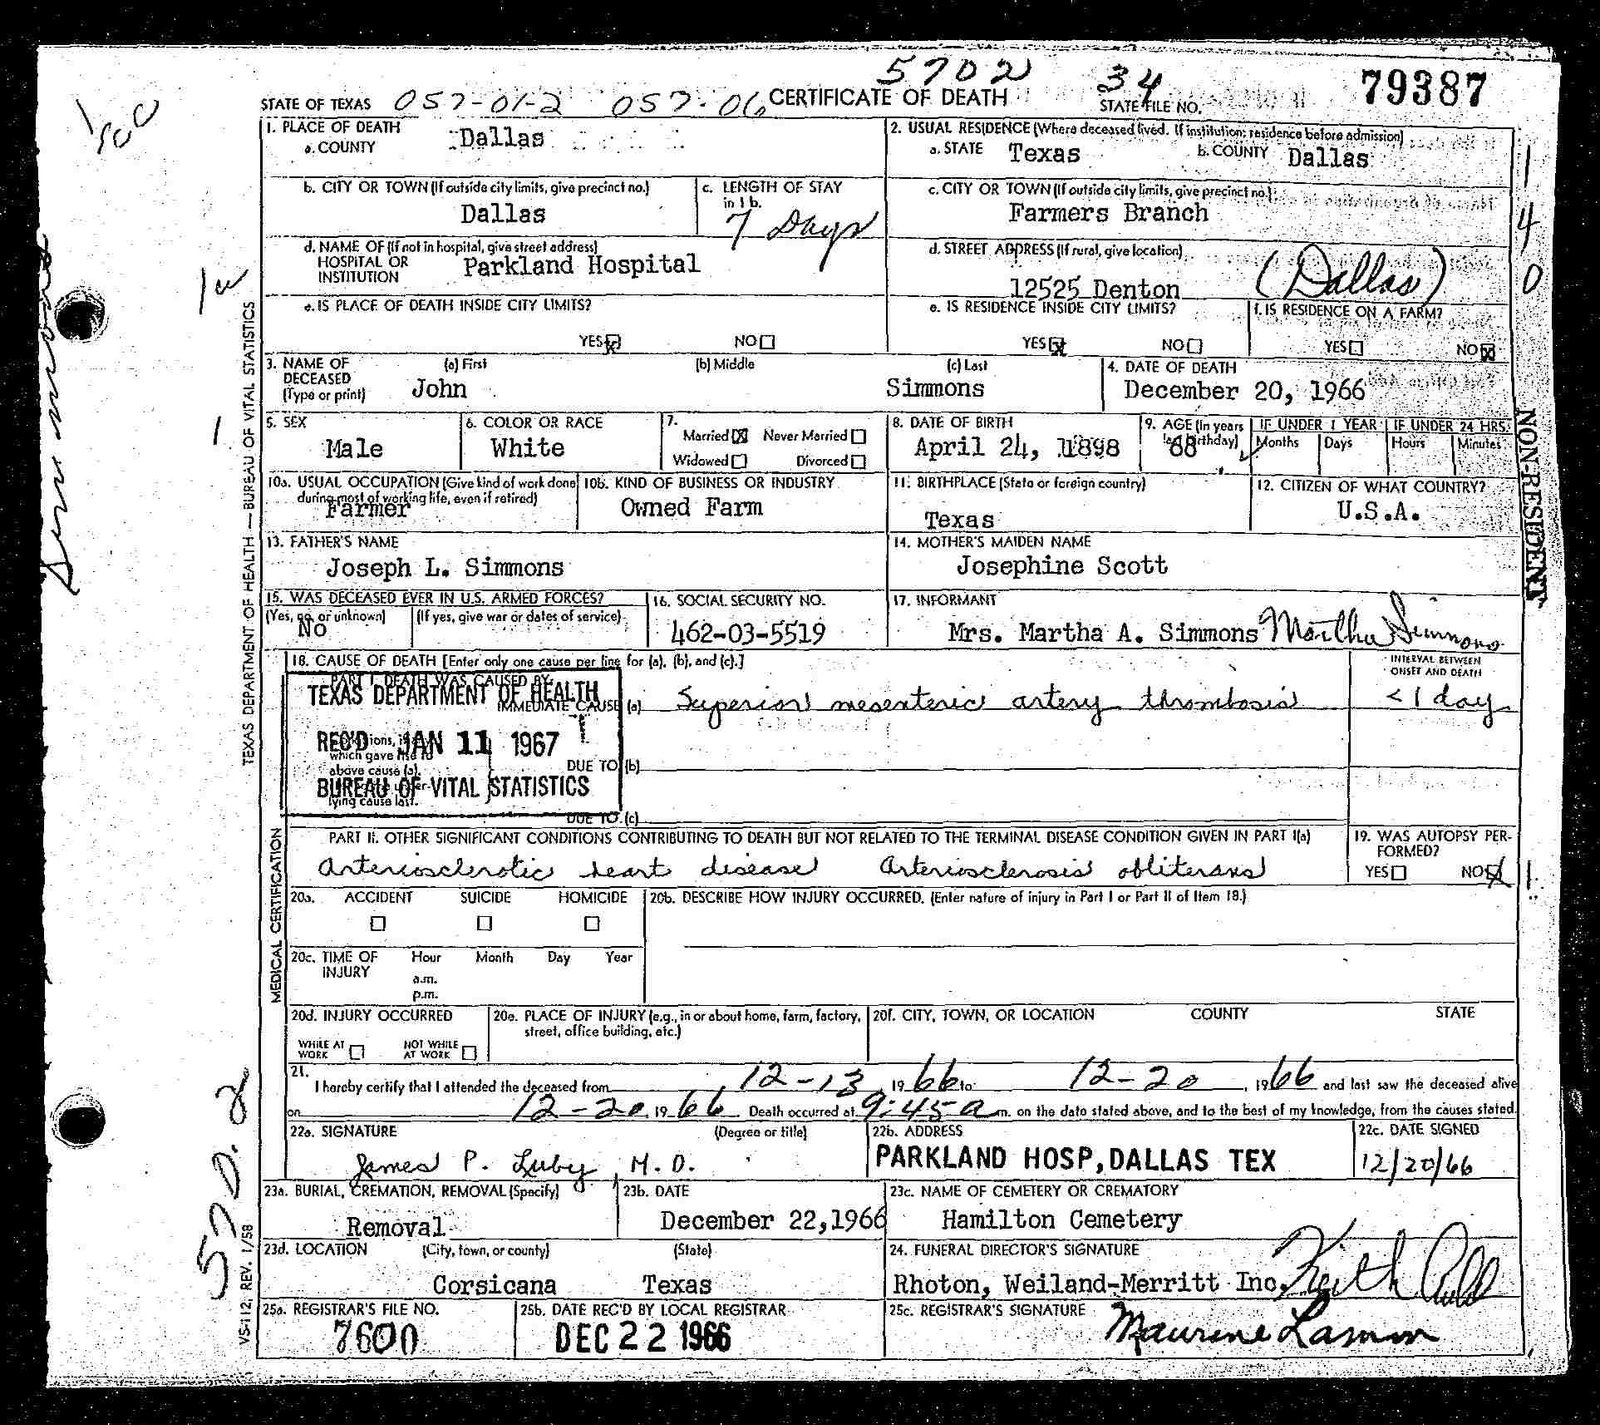 5702 34 79387
STATE OF TEXAS 057-01-2 057-06 CERTIFICATE OF DEATH STATE FILE NO.
1. PLACE OF DEATH
a. COUNTY Dallas
2. USUAL RESIDENCE (Where deceased lived. If institution: residence before admission)
a. STATE Texas b. COUNTY Dallas
b. CITY OR TOWN (If outside city limits, give precinct no.)
Dallas
c. LENGTH OF STAY in 1 b.
7 Days
c. CITY OR TOWN (If outside city limits, give precinct no.)
Farmers Branch
d. NAME OF (If not in hospital, give street address)
HOSPITAL OR INSTITUTION Parkland Hospital
d. STREET ADDRESS (If rural, give location)
12525 Denton (Dallas)
e. IS PLACE OF DEATH INSIDE CITY LIMITS?
YES NO
e. IS RESIDENCE INSIDE CITY LIMITS?
YES NO
f. IS RESIDENCE ON A FARM?
YES NO
3. NAME OF DECEASED (Type or print)
(a) First (b) Middle (c) Last
John Simmons
4. DATE OF DEATH
December 20, 1966
5. SEX
Male
6. COLOR OR RACE
White
7.
Married Never Married
Widowed Divorced
8. DATE OF BIRTH
April 24, 1898
9. AGE (In years last birthday)
68
IF UNDER 1 YEAR IF UNDER 24 HRS.
Months Days Hours Minutes
10a. USUAL OCCUPATION (Give kind of work done during most of working life, even if retired)
Farmer
10b. KIND OF BUSINESS OR INDUSTRY
Owned Farm
11. BIRTHPLACE (State or foreign country)
Texas
12. CITIZEN OF WHAT COUNTRY?
U.S.A.
13. FATHER'S NAME
Joseph L. Simmons
14. MOTHER'S MAIDEN NAME
Josephine Scott
15. WAS DECEASED EVER IN U.S. ARMED FORCES?
(Yes, no, or unknown) (If yes, give war or dates of service)
No
16. SOCIAL SECURITY NO.
462-03-5519
17. INFORMANT
Mrs. Martha A. Simmons Martha Simmons
18. CAUSE OF DEATH [Enter only one cause per line for (a), (b), and (c).]
INTERVAL BETWEEN ONSET AND DEATH
PART I. DEATH WAS CAUSED BY:
IMMEDIATE CAUSE (a) Superior mesenteric artery thrombosis <1 day
TEXAS DEPARTMENT OF HEALTH
REC'D JAN 11 1967
BUREAU OF VITAL STATISTICS
which gave rise to
above cause (a),
lying cause last.
DUE TO (b)
DUE TO (c)
PART II. OTHER SIGNIFICANT CONDITIONS CONTRIBUTING TO DEATH BUT NOT RELATED TO THE TERMINAL DISEASE CONDITION GIVEN IN PART I(a)
Arteriosclerotic heart disease Arteriosclerosis obliterans
19. WAS AUTOPSY PERFORMED?
YES NO
20a. ACCIDENT SUICIDE HOMICIDE
20b. DESCRIBE HOW INJURY OCCURRED. (Enter nature of injury in Part I or Part II of Item 18.)
20c. TIME OF INJURY Hour Month Day Year
a.m.
p.m.
20d. INJURY OCCURRED
WHILE AT WORK NOT WHILE AT WORK
20e. PLACE OF INJURY (e.g., in or about home, farm, factory, street, office building, etc.)
20f. CITY, TOWN, OR LOCATION COUNTY STATE
21.
I hereby certify that I attended the deceased from 12-13, 1966 to 12-20, 1966 and last saw the deceased alive
on 12-20 1966 Death occurred at 9:45 a m. on the date stated above, and to the best of my knowledge, from the causes stated.
22a. SIGNATURE (Degree or title)
James P. Luby, M.D.
22b. ADDRESS
PARKLAND HOSP, DALLAS TEX
22c. DATE SIGNED
12/20/66
23a. BURIAL, CREMATION, REMOVAL (Specify)
Removal
23b. DATE
December 22, 1966
23c. NAME OF CEMETERY OR CREMATORY
Hamilton Cemetery
23d. LOCATION (City, town, or county) (State)
Corsicana Texas
24. FUNERAL DIRECTOR'S SIGNATURE
Rhoton, Weiland-Merritt Inc. Keith
25a. REGISTRAR'S FILE NO.
7600
25b. DATE REC'D BY LOCAL REGISTRAR
DEC 22 1966
25c. REGISTRAR'S SIGNATURE
Maurine Lamm
TEXAS DEPARTMENT OF HEALTH — BUREAU OF VITAL STATISTICS
MEDICAL CERTIFICATION
VS-112 REV. 1/58
Simmons
570.2
1 4 0
NON-RESIDENT
1